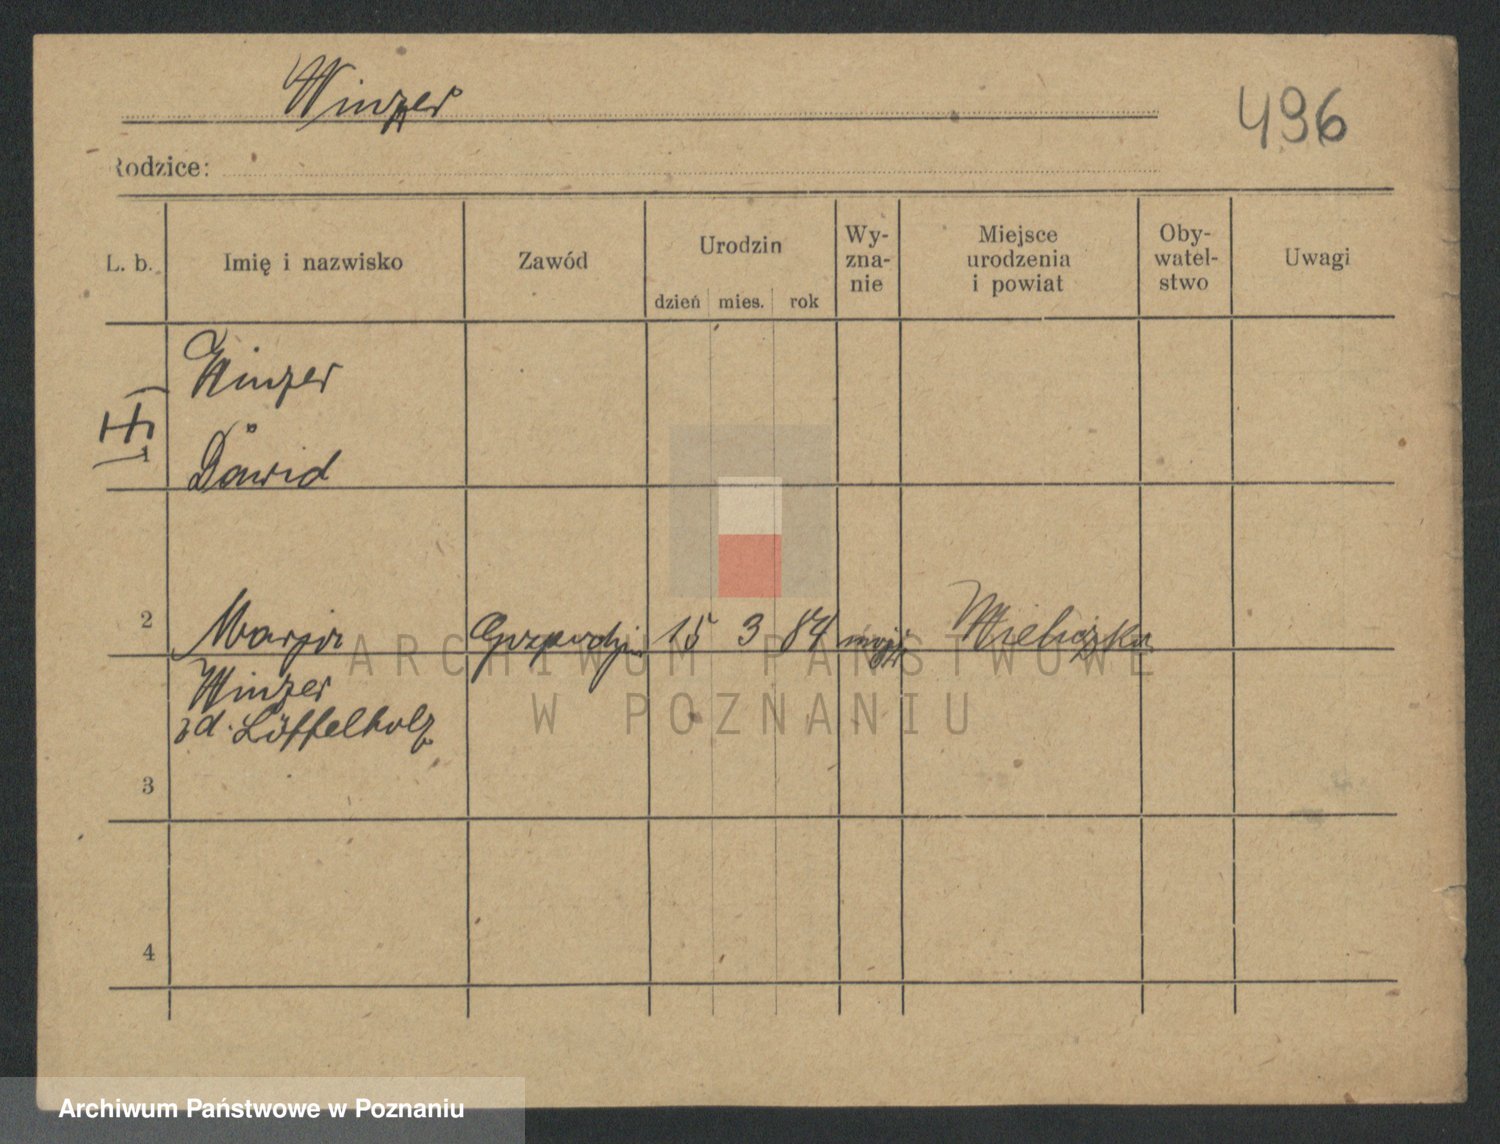 Winzer
496
Rodzice:
L. b.
Imię i nazwisko
Zawód
Urodzin
dzień mies. rok
Wy-
zna-
nie
Miejsce
urodzenia
i powiat
Oby-
watel-
stwo
Uwagi
Winzer
Dawid
1
2
Marja
15 3 84
Wieliczka
ARCHIWUM PAŃSTWOWE
W POZNANIU
Winzer
zd. Löffelholz
3
4
Archiwum Państwowe w Poznaniu